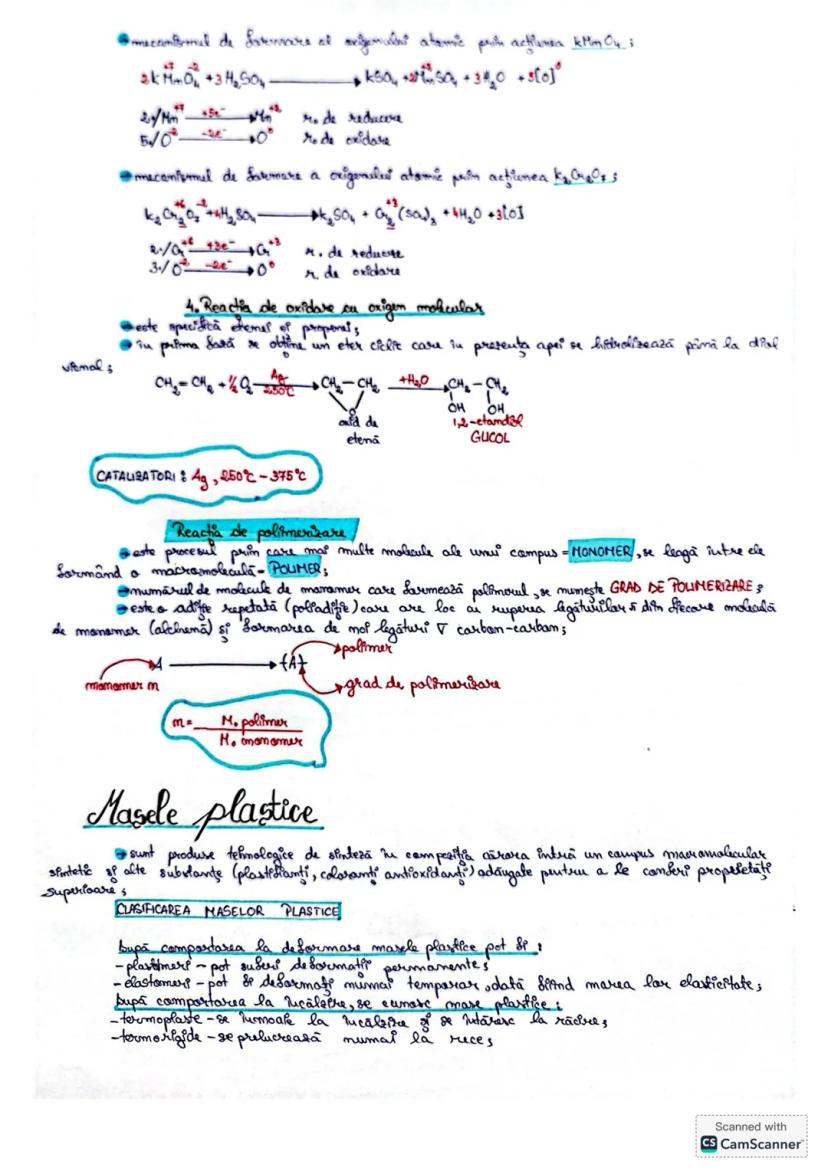 mecanismul de formare al oxigenului atomic prin acțiunea KMnO4 ;
2KMnO4 + 3H2SO4 → KSO4 + 2MnSO4 + 3H2O + 5[O]
+7 -2 +2 0
2·/Mn+7 +5e- → Mn+2 r. de reducere
5·/O-2 -2e- → O0 r. de oxidare
mecanismul de formare a oxigenului atomic prin acțiunea K2Cr2O7 ;
+6 -2 +3
K2Cr2O7 + 4H2SO4 → K2SO4 + Cr2(SO4)3 + 4H2O + 3[O]
2·/Cr+6 +3e- → Cr+3 r. de reducere
3·/O-2 -2e- → O0 r. de oxidare
4. Reacția de oxidare cu oxigen molecular
este specifică etenei și propenei;
în prima fază se obține un eter ciclic care în prezența apei se hidrolizează până la diol
vicinal ;
CH2=CH2 + 1/2 O2 Ag 250°C → CH2-CH2 +H2O → CH2 - CH2
O OH OH
oxid de 1,2-etandiol
etenă GLICOL
CATALIZATORI : Ag, 250°C - 375°C
Reacția de polimerizare
este procesul prin care mai multe molecule ale unui compus = MONOMER, se leagă între ele
formând o macromoleculă = POLIMER;
numărul de molecule de monomer care formează polimerul, se numește GRAD DE POLIMERIZARE ;
este o adiție repetată (poliadiție) care are loc cu ruperea legăturilor π din fiecare moleculă
de monomer (alchenă) și formarea de noi legături ∇ carbon-carbon;
polimer
A → {A}
monomer n
grad de polimerizare
n = M. polimer
M. monomer
Masele plastice
sunt produse tehnologice de sinteză în compoziția cărora intră un compus macromolecular
sintetic și alte substanțe (plastifianți, coloranți, antioxidanți) adăugate pentru a le conferi proprietăți
superioare ;
CLASIFICAREA MASELOR PLASTICE
După comportarea la deformare masele plastice pot fi :
-plastomeri - pot suferi deformații permanente;
-elastomeri - pot fi deformați numai temporar, dată fiind marea lor elasticitate;
După comportarea la încălzire, se cunosc mase plastice :
-termoplaste - se înmoaie la încălzire și se întăresc la răcire;
-termorigide - se prelucrează numai la rece;
Scanned with
CS CamScanner